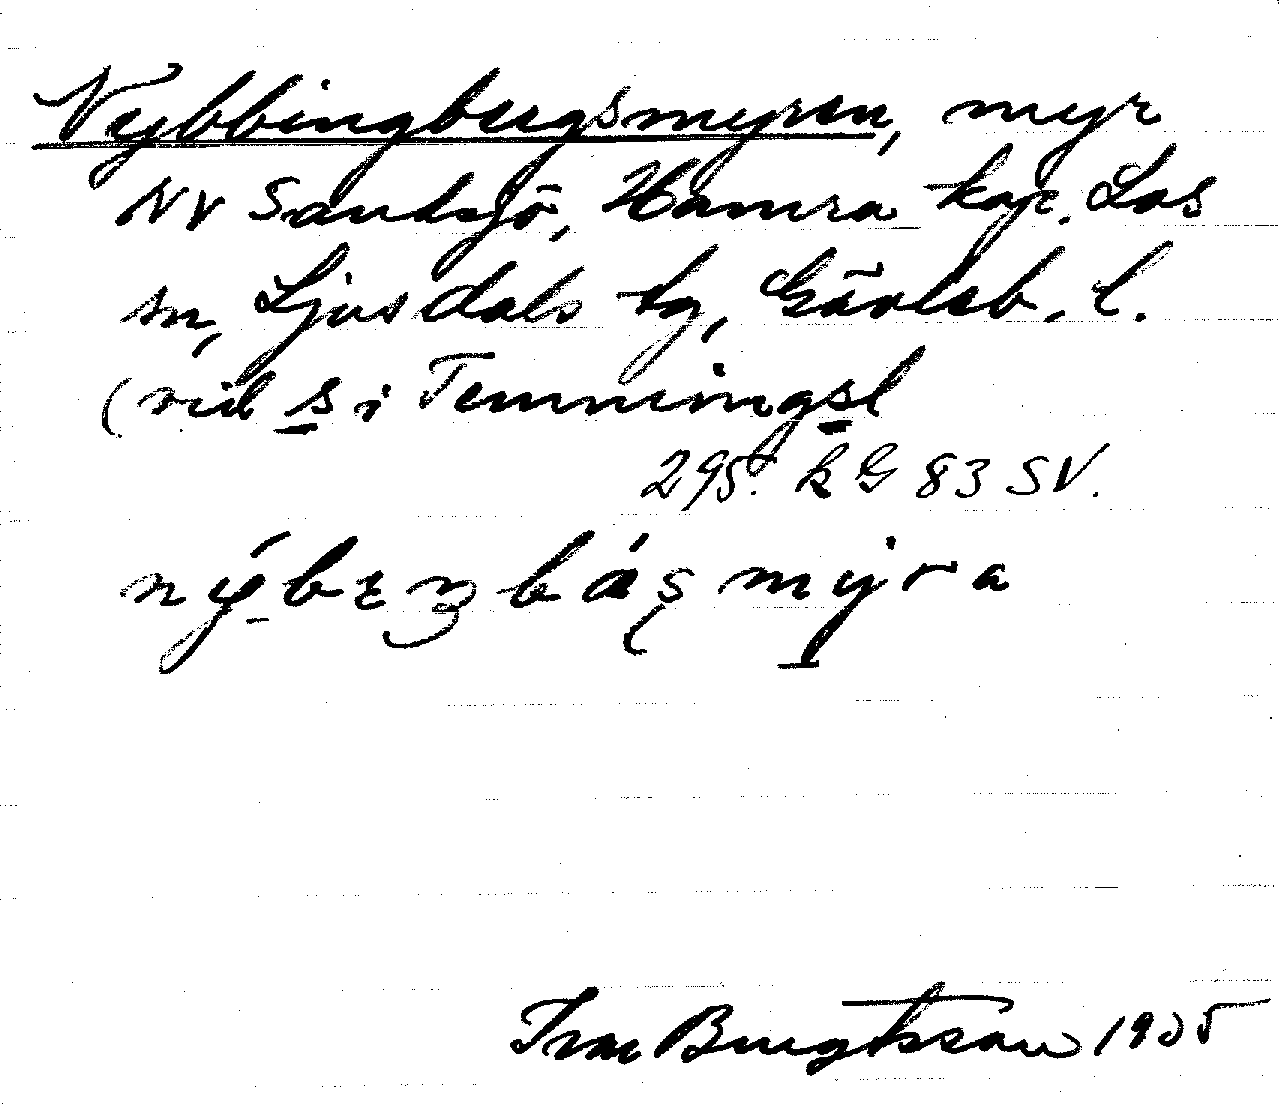 Nybbingbergsmyren, myr
NV Sandsjö, Hamra kap. Los
sn, Ljusdals tg, Gävleb. l.
(vid s i Tenningsl
295. k G 83 SV.
mýra
Ivar Bengtsson 1935